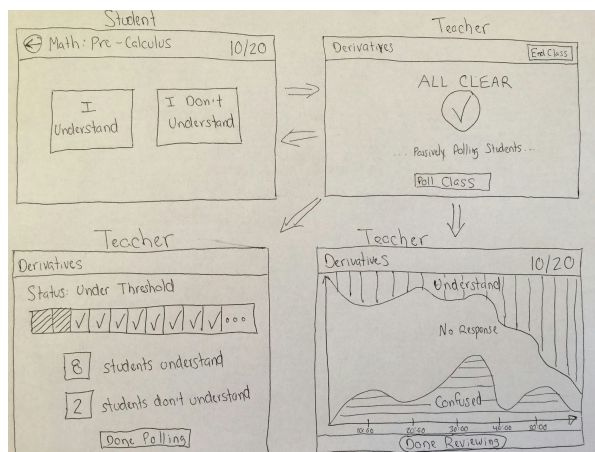 Student
Math: Pre-Calculus 10/20
I
Understand
I Don't
Understand
Teacher
Derivatives End Class
ALL CLEAR
... Passively Polling Students...
Poll Class
Teacher
Derivatives
Status: Under Threshold
8 students understand
2 students don't understand
Done Polling
Teacher
Derivatives 10/20
Understand
No Response
Confused
10:00 20:00 30:00 40:00 50:00
Done Reviewing